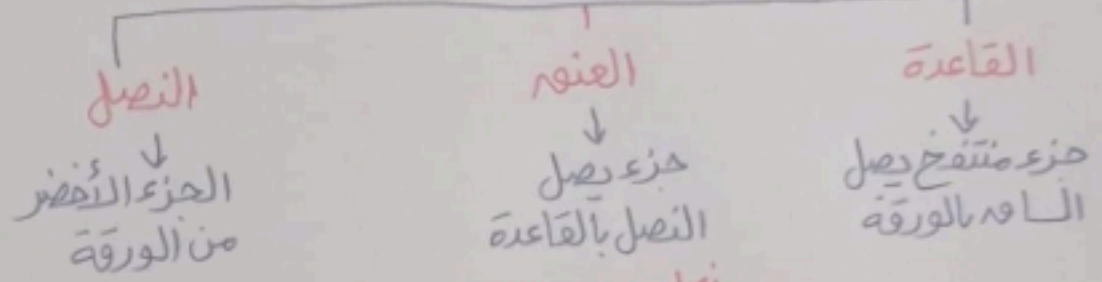 القاعدة
جزء منتفخ يصل
الساق بالورقة
العنق
جزء يصل
النصل بالقاعدة
النصل
الجزء الأخضر
من الورقة